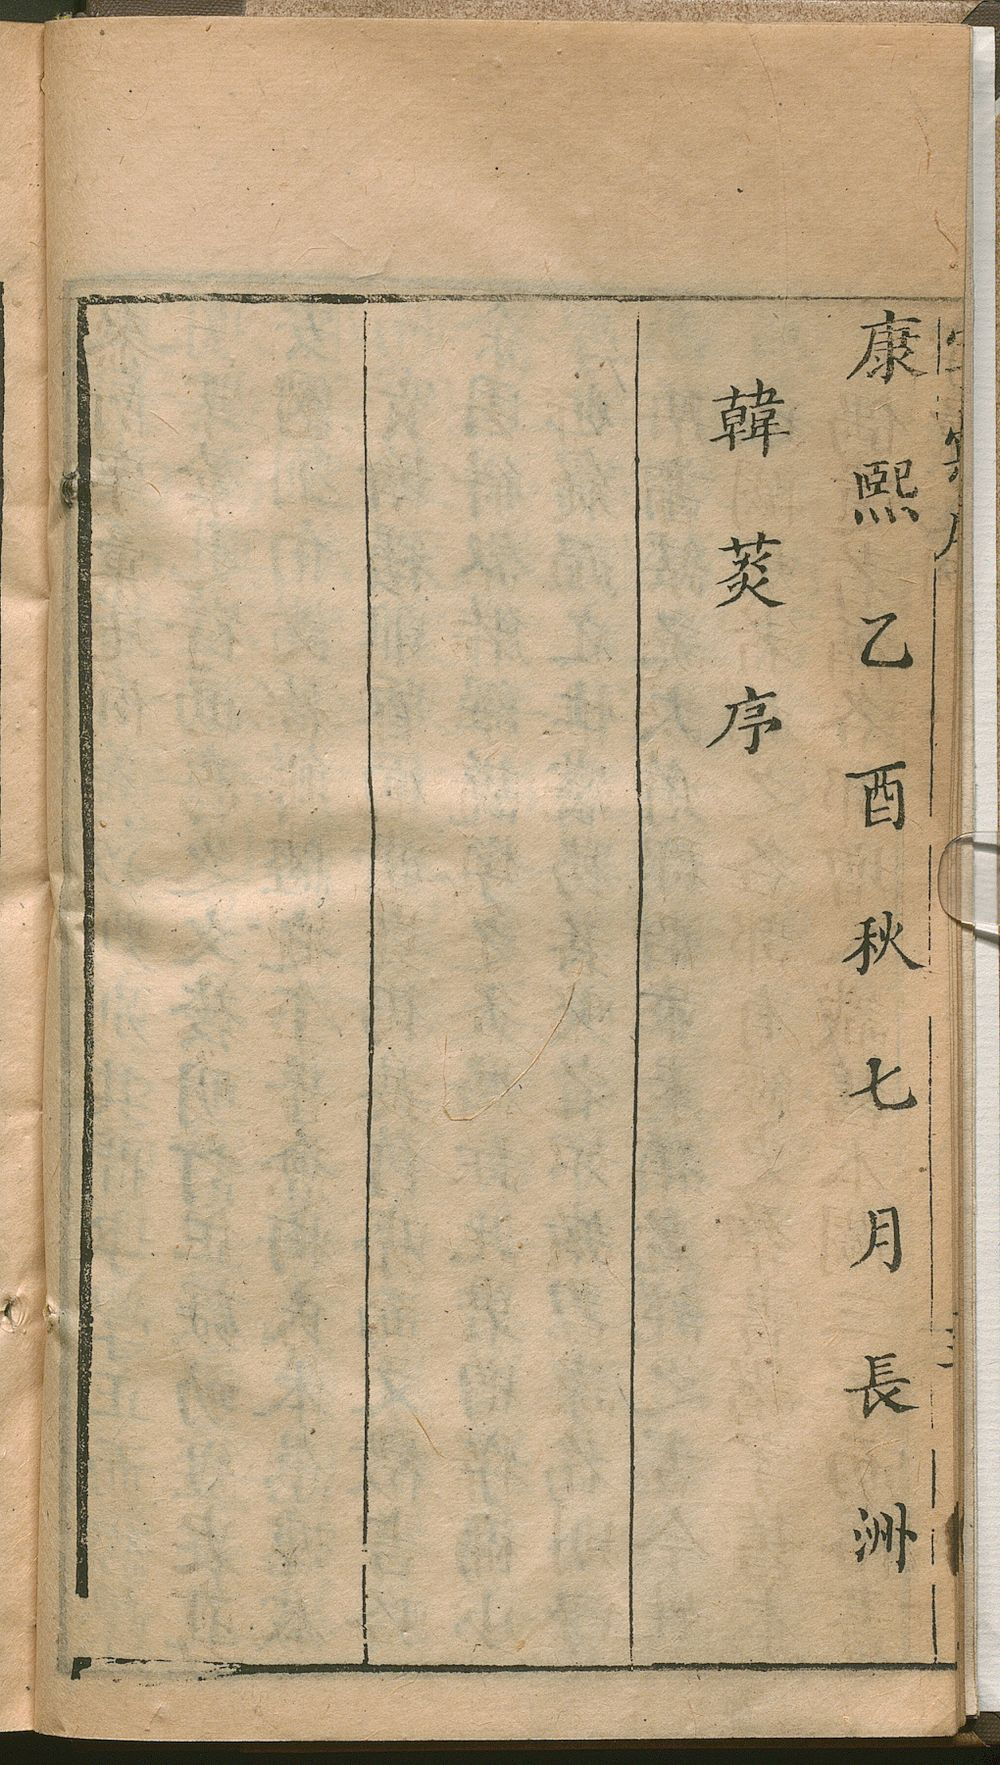 康熙乙酉秋七月長洲
韓菼序